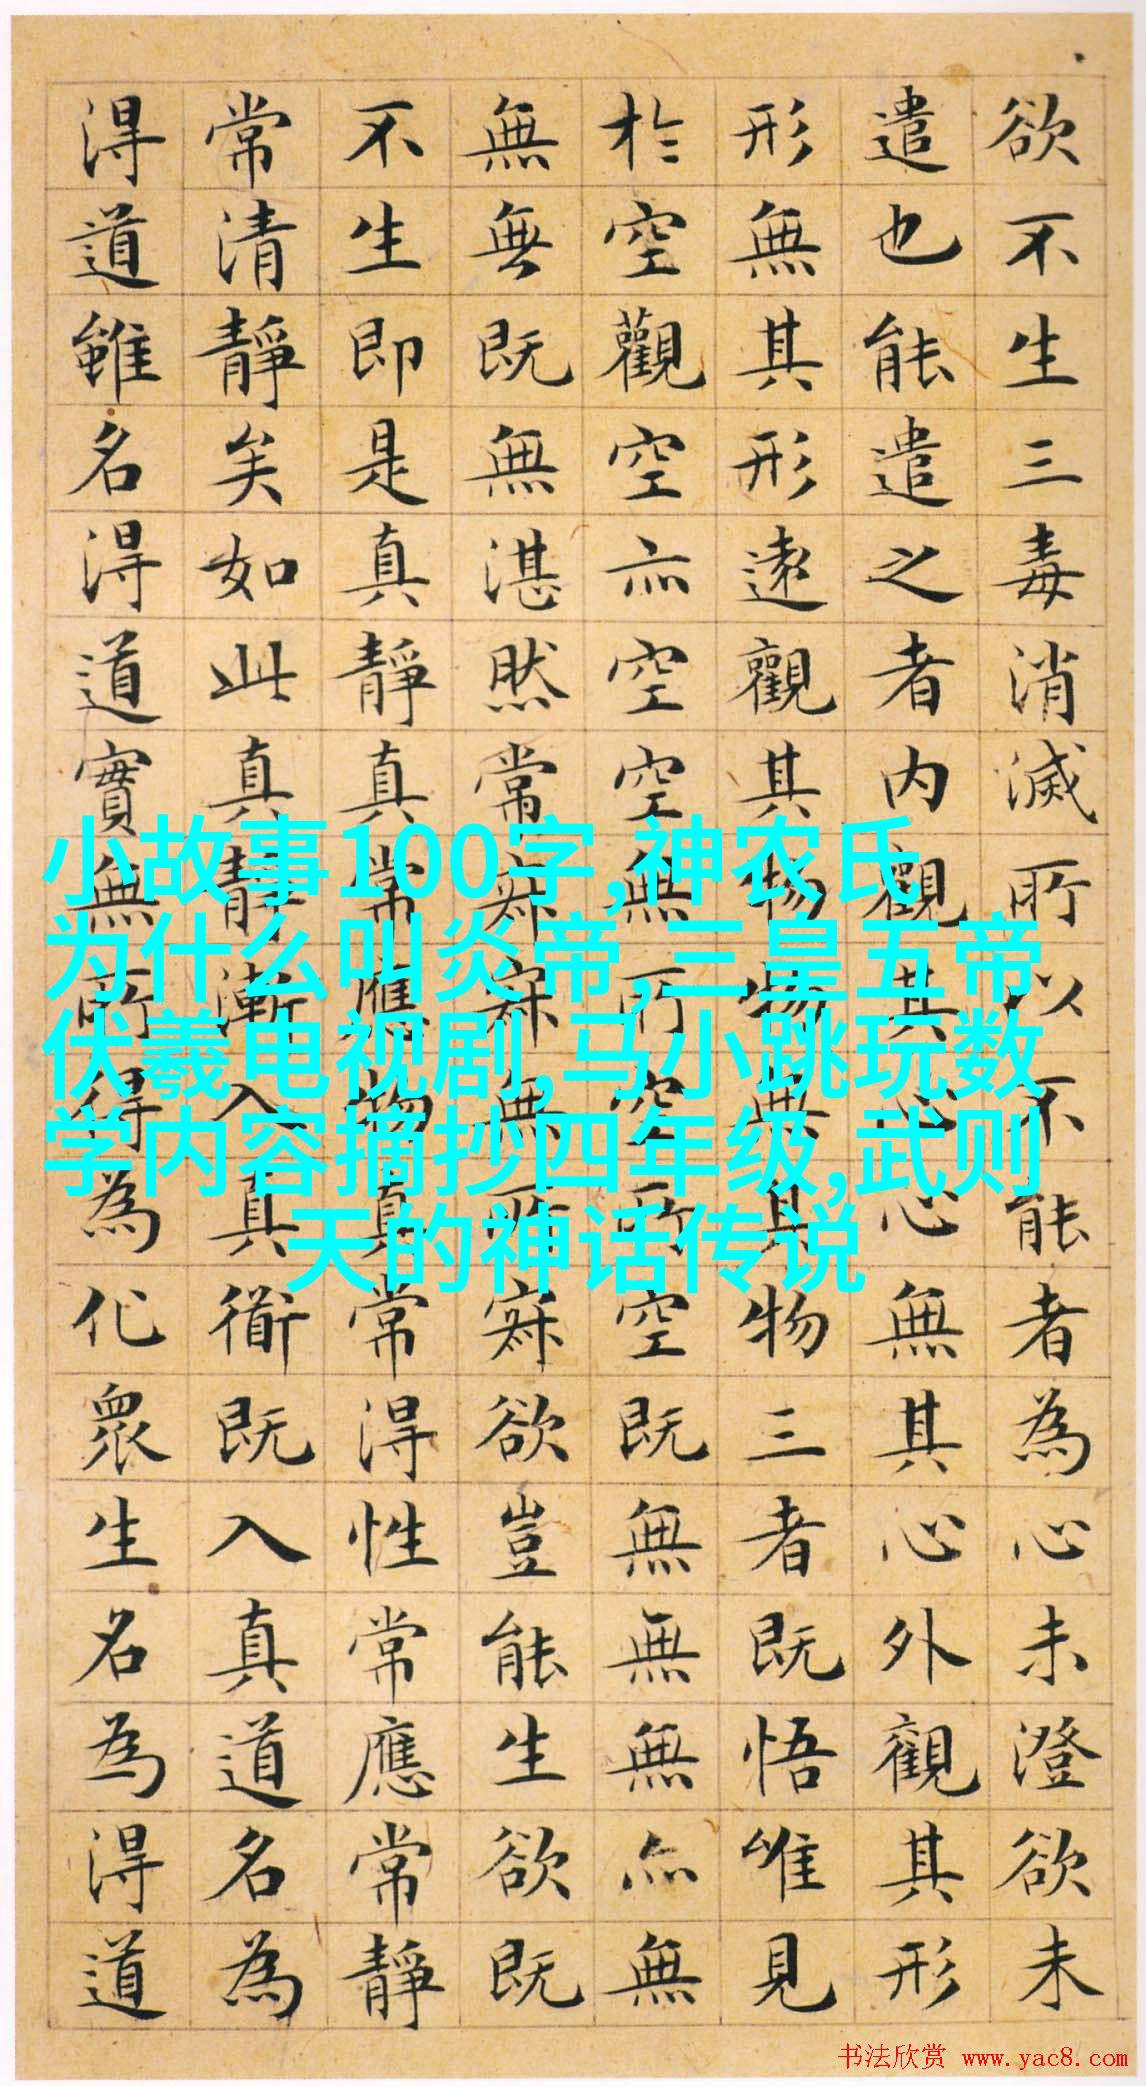 欲不生三毒消滅所以不能者為心未澄欲未
遣也能遣之者内觀其心心無其心外觀其形
形無其形遠觀其物物無其物三者既悟唯見
於空觀空亦空空無所空所空既無無無亦無
無無既無湛然常寂寂無所寂欲豈能生欲既
不生即是真靜真常應物真常得性常應常靜
常清靜矣如此真靜漸入真衜既入真道名為
得道雖名得道實無所得為化眾生名為得道
小故事100字,神农氏
为什么叫炎帝,三皇五帝
伏羲电视剧,马小跳玩数
学内容摘抄四年级,武则
天的神话传说
书法欣赏 www.yac8.com